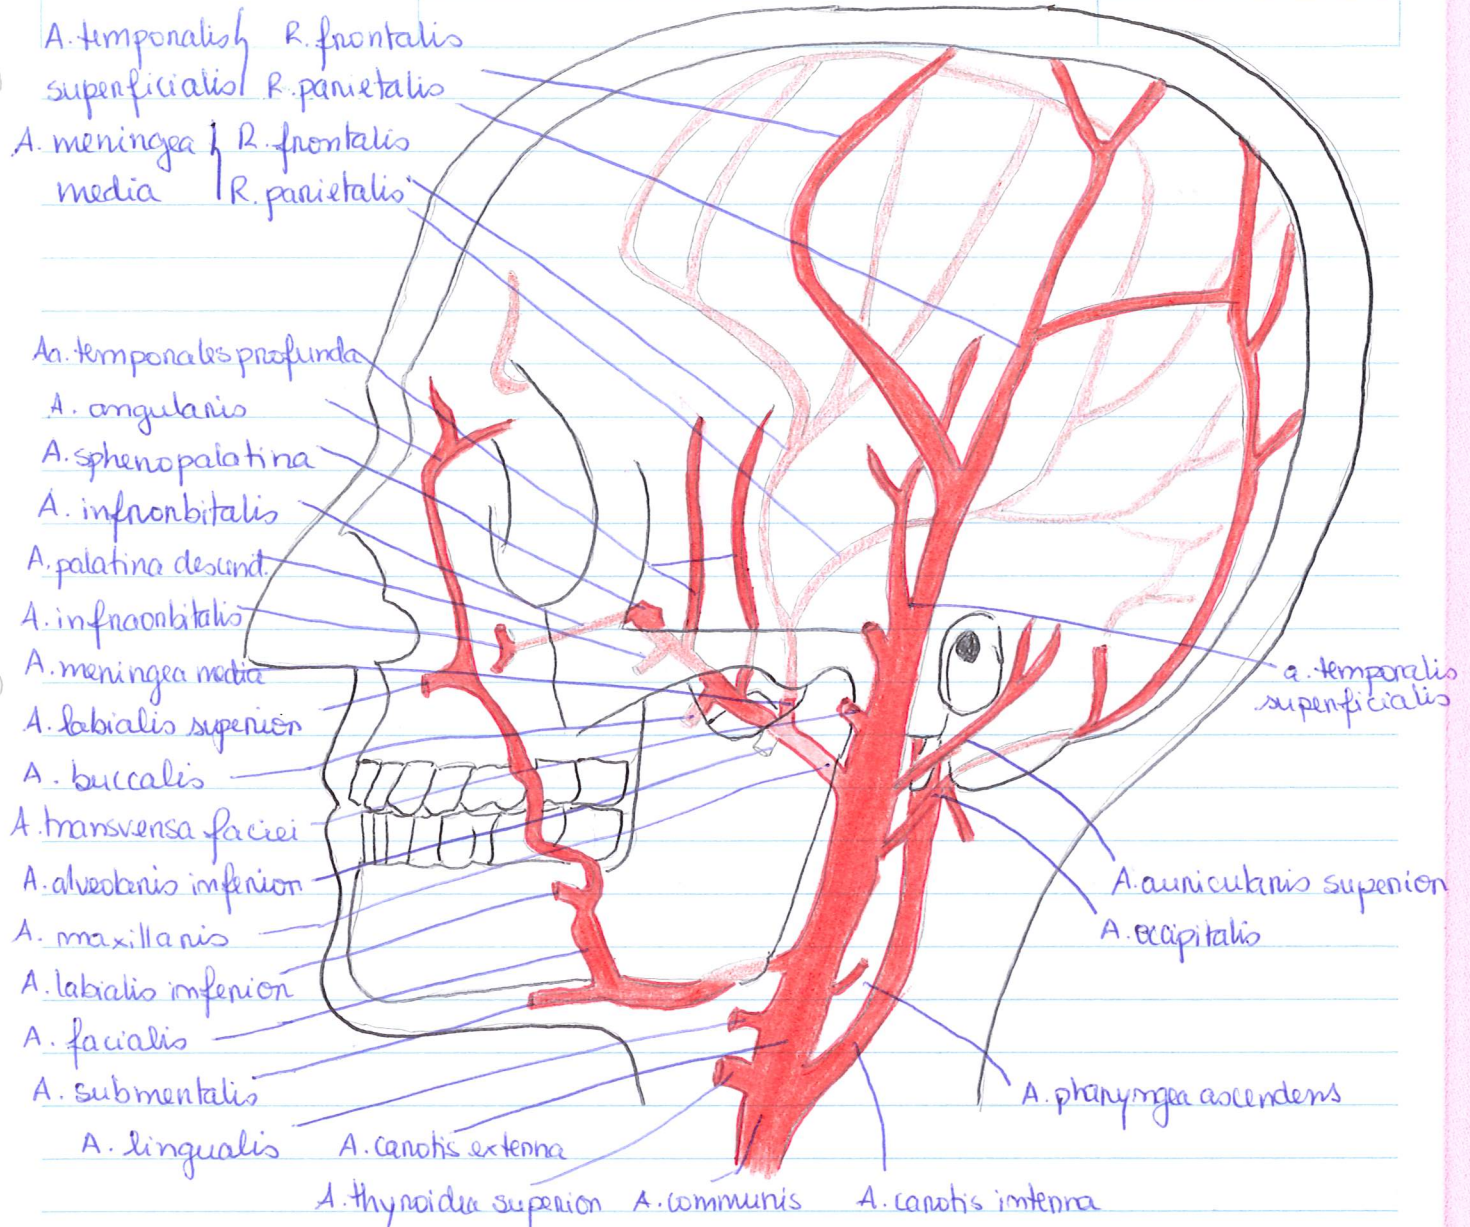 A. temporalis R. frontalis
superficialis R. parietalis
A. meningea R. frontalis
media R. parietalis
Aa. temporales profunda
A. angularis
A. sphenopalatina
A. infrorbitalis
A. palatina descend.
A. infraorbitalis
A. meningea media
A. labialis superior
A. buccalis
A. transversa faciei
A. alveolaris inferior
A. maxillaris
A. labialis inferior
A. facialis
A. submentalis
A. lingualis
A. carotis externa
A. thyroidea superior
A. communis
A. carotis interna
A. pharyngea ascendens
A. occipitalis
A. auricularis superior
a. temporalis
superficialis